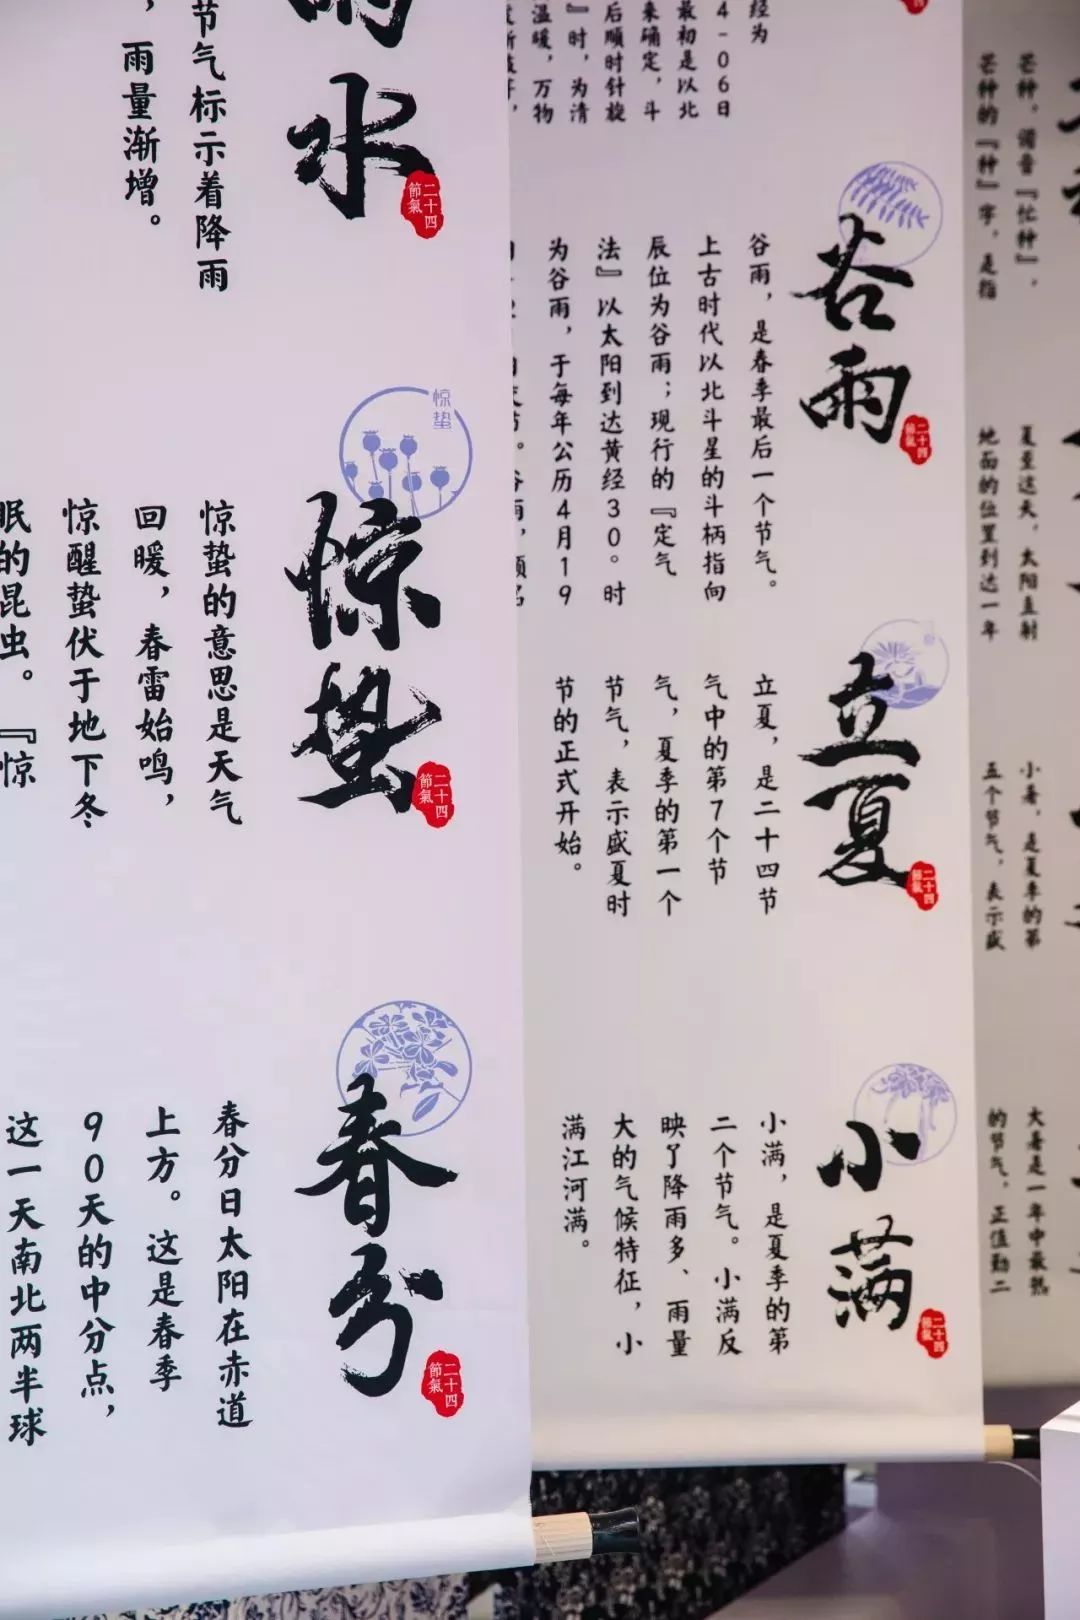 雨水
二十四
節氣
节气标示着降雨
，雨量渐增。
惊蛰
惊蛰
二十四
節氣
惊蛰的意思是天气
回暖，春雷始鸣，
惊醒蛰伏于地下冬
眠的昆虫。『惊
春分
二十四
節氣
春分日太阳在赤道
上方。这是春季
90天的中分点，
这一天南北两半球
经为
4-06日
最初是以北
来确定，斗
后顺时针旋
』时，为清
温暖，万物
谷雨
二十四
節氣
谷雨，是春季最后一个节气。
上古时代以北斗星的斗柄指向
辰位为谷雨；现行的『定气
法』以太阳到达黄经30°时
为谷雨，于每年公历4月19
立夏
二十四
節氣
立夏，是二十四节
气中的第7个节
气，夏季的第一个
节气，表示盛夏时
节的正式开始。
小满
二十四
節氣
小满，是夏季的第
二个节气。小满反
映了降雨多、雨量
大的气候特征，小
满江河满。
芒种，谐音『忙种』，
芒种的『种』字，是指
夏至这天，太阳直射
地面的位置到达一年
小暑，是夏季的第
五个节气，表示盛
大暑是一年中最热
的节气，正值勤二